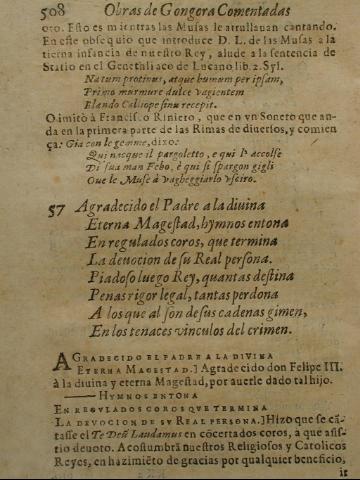 508 Obras de Gongora Comentadas
oro. Esto es mientras las Musas le arrullauan cantando.
En este obsequio que introduce D. L. de las Musas a la
tierna infancia de nuestro Rey, alude a la sentencia de
Statio en el Genethliaco de Lucano lib. 2. Syl.
Natum protinus, atque humum per ipsam,
Primo murmure dulce vagientem
Blando Caliope sinu recepit.
O imitò à Francisco Riniero, que en vn Soneto que an-
da en la primera parte de las Rimas de diuersos, y comien
ça: Gia con le gemme, dizo:
Qui nacque il pargoletto, e qui l' accolse
Di sua man Febo, è qui si spargon gigli
Oue le Musè à vagheggiarlo vsciro.
57 Agradecido el Padre a la diuina
Eterna Magestad, hymnos entona
En regulados coros, que termina
La deuocion de su Real persona.
Piadoso luego Rey, quantas destina
Penas rigor legal, tantas perdona
A los que al son de sus cadenas gimen,
En los tenaces vinculos del crimen.
AGRADECIDO EL PADRE A LA DIVINA
ETERNA MAGESTAD.] Agradecido don Felipe III.
à la diuina y eterna Magestad, por auerle dado tal hijo.
—— HYMNOS ENTONA
EN REGVLADOS COROS QVE TERMINA
LA DEVOCION DE SV REAL PERSONA.] Hizo que se cã-
tasse el Te Deũ Laudamus en cõcertados coros, a que assi-
tio deuoto. Acostumbrã nuestros Religiosos y Catolicos
Reyes, en hazimiẽto de gracias por qualquier beneficio,
ir